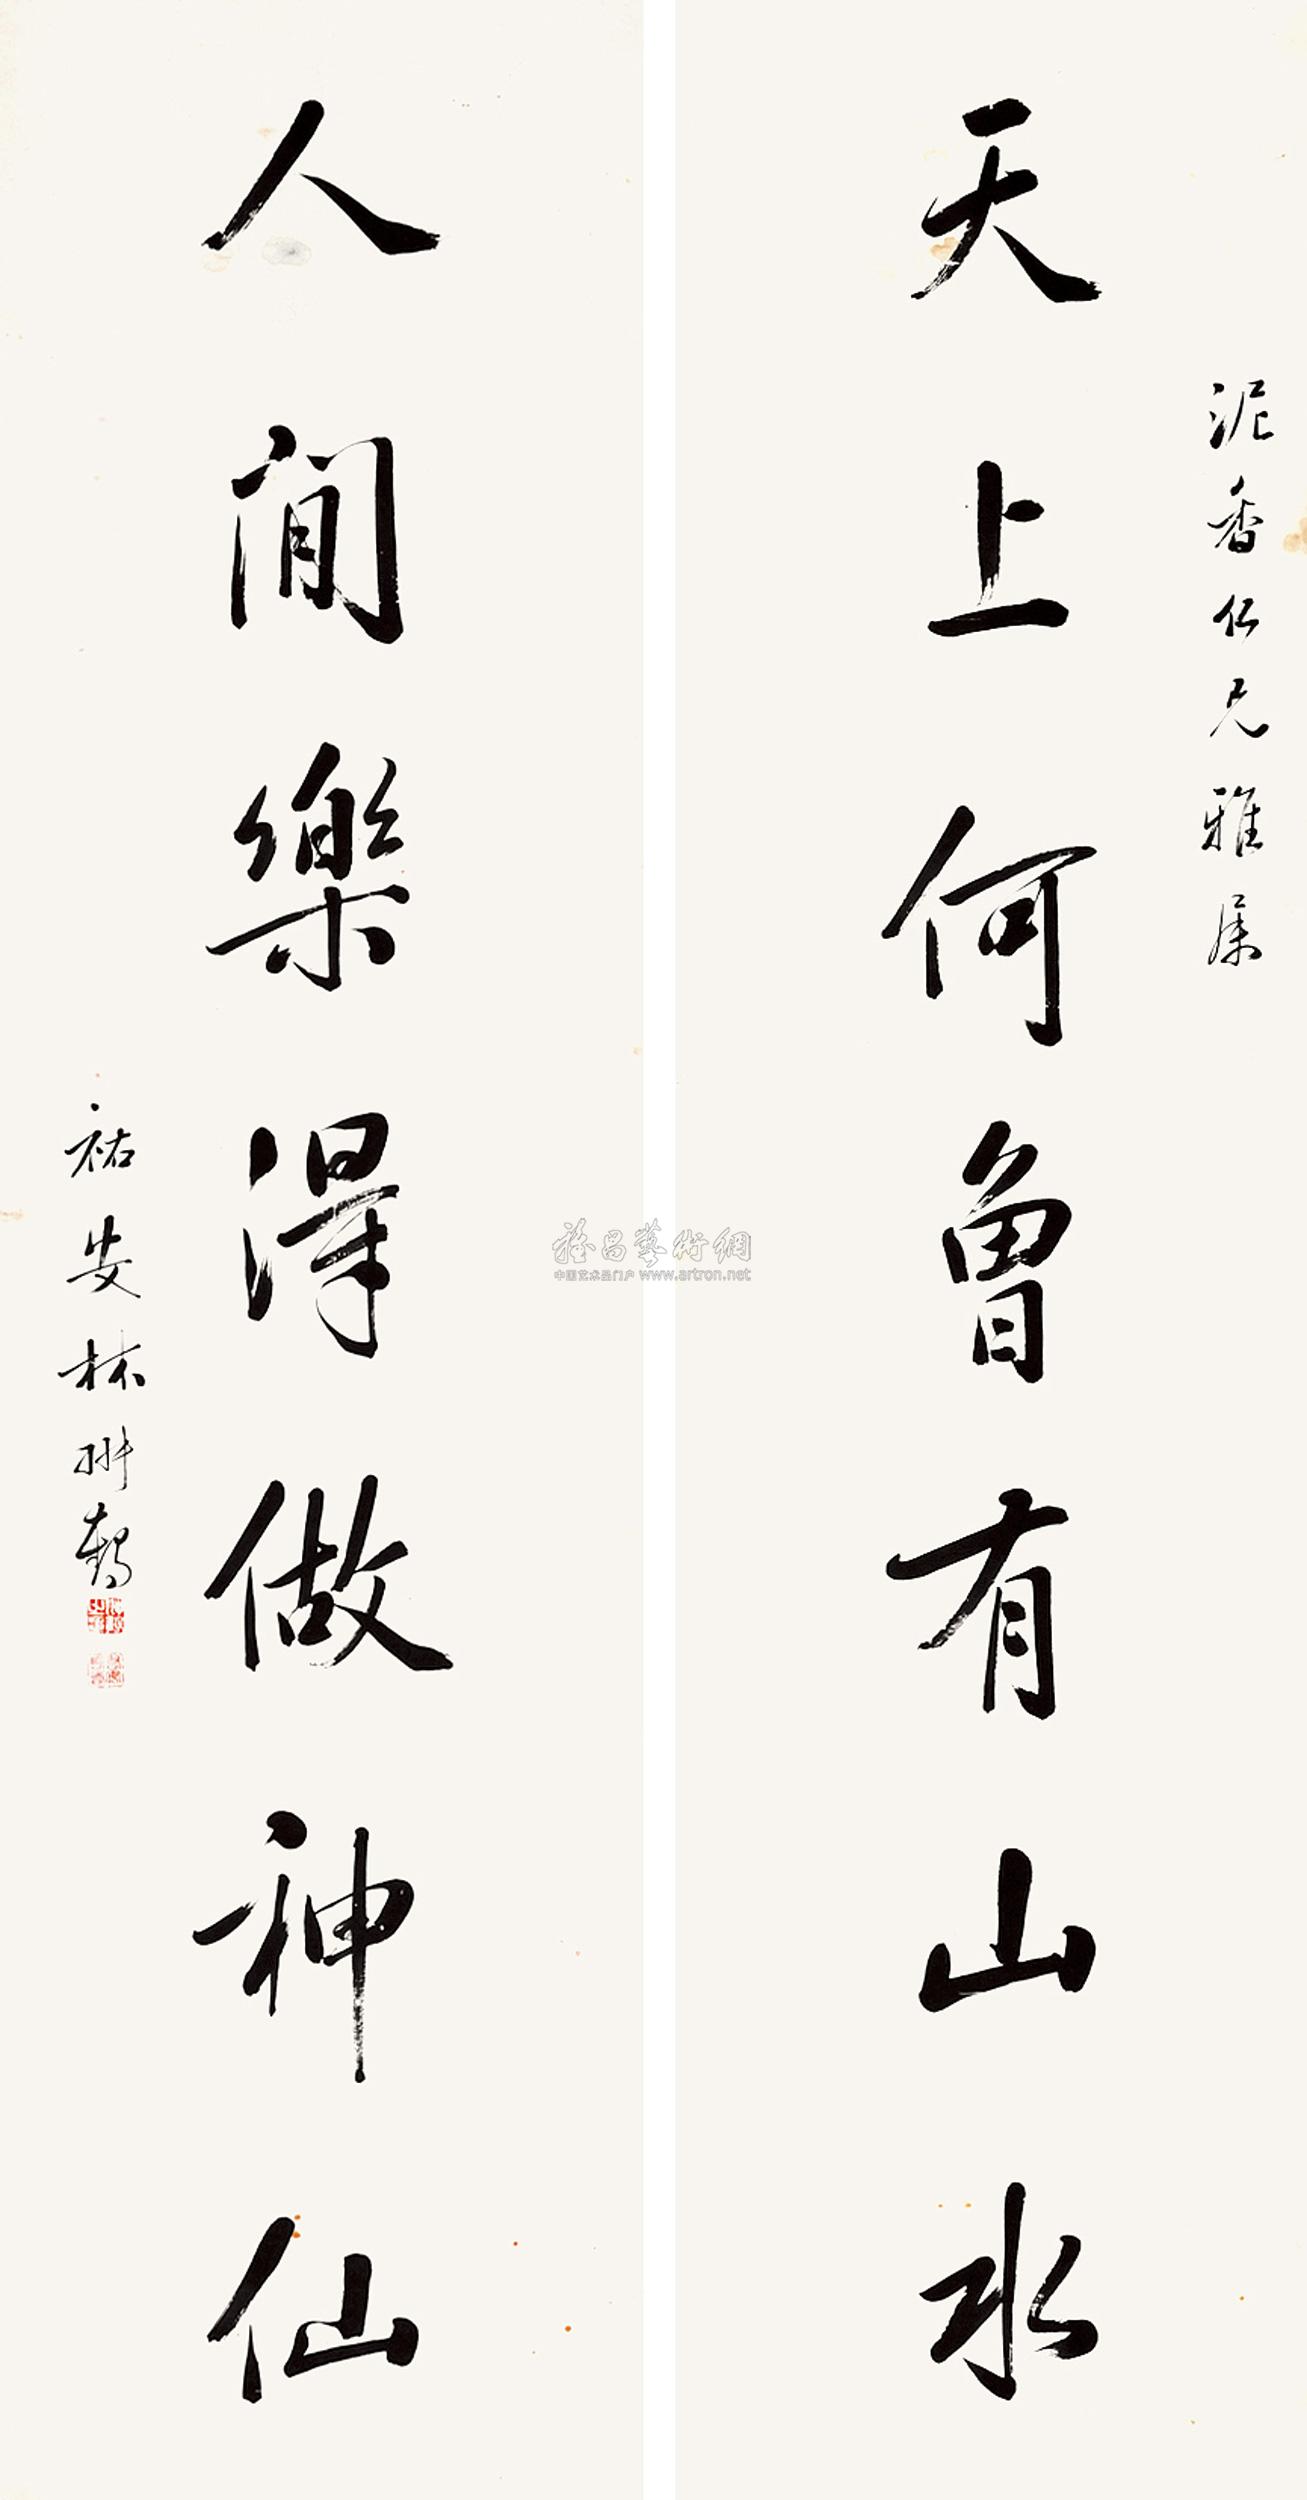 泥香仁兄雅属
天上何曾有山水
人间樂得做神仙
祐安林翀鶴
雅昌藝術網
中国艺术品门户 www.artron.net